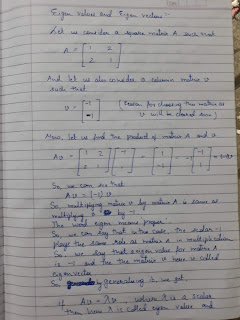 "Eigen values and Eigen vectors":-
Let us consider a square matrix A such that
A = [ 1 2
2 1 ]
And let us also consider a column matrix v
such that
v = [ -1
-1 ] ( reason for choosing this matrix as
v will be cleared soon )
Now, let us find the product of matrix A and v
Av = [ 1 2
2 1 ] [ -1
1 ] = [ 1
-1 ] = -1 [ -1
1 ]
So we can see that
Av = (-1) v
So multiplying matrix v by matrix A is same as
multiplying by -1.
The word eigen means proper
So, we can say that in this case, the scalar -1
plays the same role as matrix A in multiplication
So, we say that eigen value for matrix A
is -1 and the matrix v here is called
eigenvector
So by generalising it, we get,
If Av = λv, where λ is a scalar
then here λ is called eigen value and